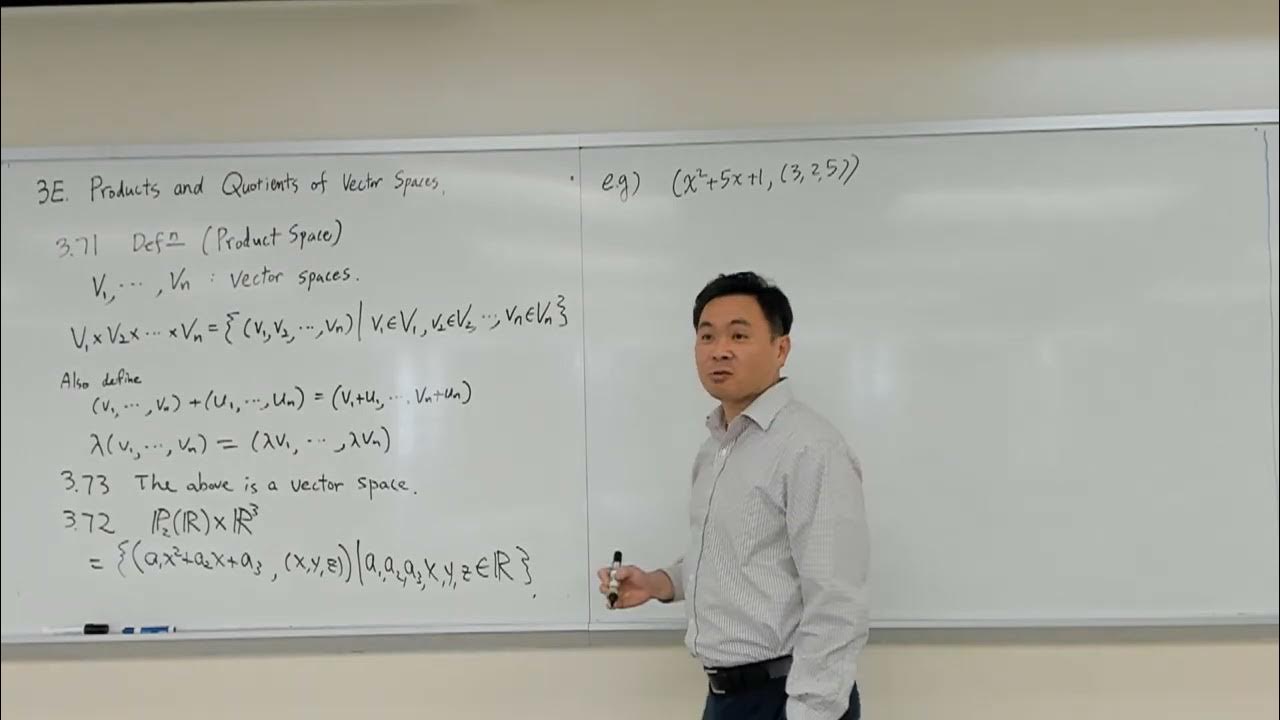 3E. Products and Quotients of Vector Spaces.
3.71 Defn (Product Space)
V₁, ⋯, Vn : vector spaces.
V₁ × V₂ × ⋯ × Vn = {(v₁, v₂, ⋯, vn) | v₁ ∈ V₁, v₂ ∈ V₂, ⋯, vn ∈ Vn}
Also define
(v₁, ⋯, vn) + (u₁, ⋯, un) = (v₁+u₁, ⋯, vn+un)
λ(v₁, ⋯, vn) = (λv₁, ⋯, λvn)
3.73 The above is a vector space.
3.72 ℙ₂(ℝ) × ℝ³
= {(a₁x²+a₂x+a₃, (x,y,z)) | a₁,a₂,a₃,x,y,z ∈ ℝ}.
e.g) (x²+5x+1, (3,2,5))